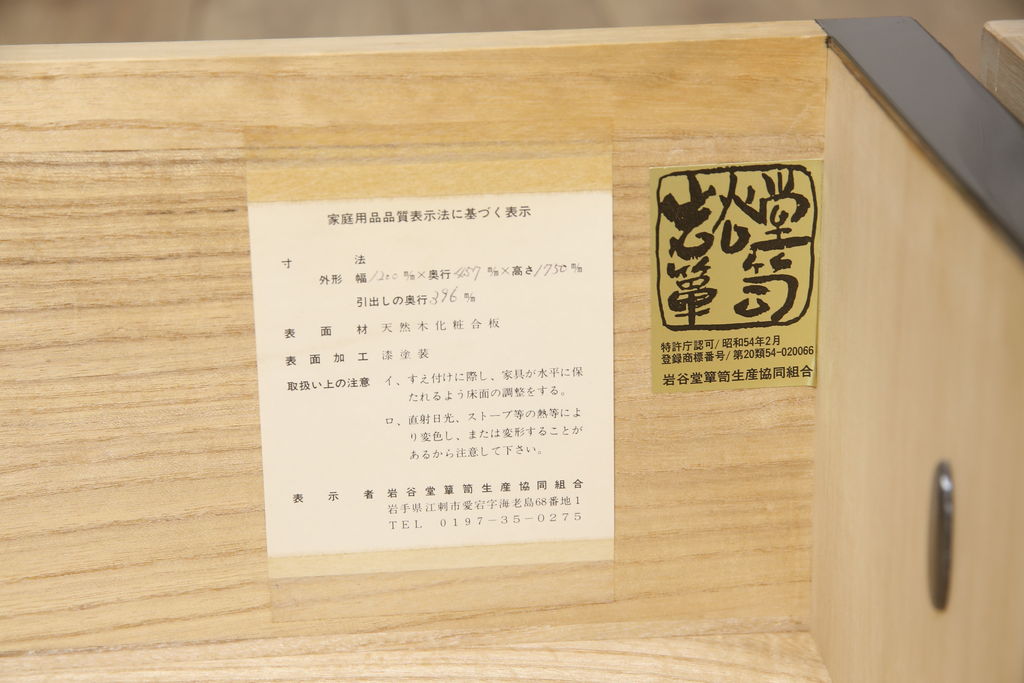 家庭用品品質表示法に基づく表示
寸法
外形 幅1200㎜×奥行457㎜×高さ1750㎜
引出しの奥行396㎜
表面材 天然木化粧合板
表面加工 漆塗装
取扱い上の注意 イ、すえ付けに際し、家具が水平に保
たれるよう床面の調整をする。
ロ、直射日光、ストーブ等の熱等によ
り変色し、または変形することが
あるから注意して下さい。
表示者 岩谷堂簞笥生産協同組合
岩手県江刺市愛宕字海老島68番地1
TEL 0197-35-0275
岩谷堂
簞笥
特許庁認可/昭和54年2月
登録商標番号/第20類54-020066
岩谷堂簞笥生産協同組合